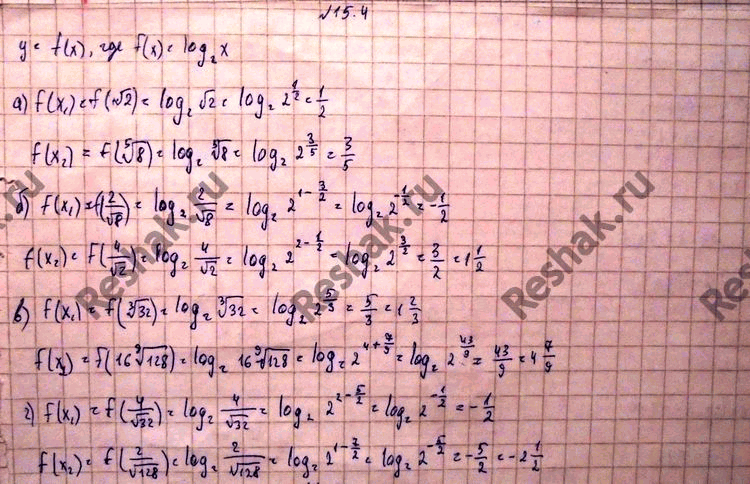 №15.4
y = f(x), где f(x) = log₂x
а) f(x₁) = f(√2) = log₂√2 = log₂2^(1/2) = 1/2
f(x₂) = f(⁵√8) = log₂⁵√8 = log₂2^(3/5) = 3/5
б) f(x₁) = f(2/√8) = log₂ 2/√8 = log₂2^(1-3/2) = log₂2^(-1/2) = -1/2
f(x₂) = f(4/√2) = log₂ 4/√2 = log₂2^(2-1/2) = log₂2^(3/2) = 3/2 = 1 1/2
в) f(x₁) = f(³√32) = log₂³√32 = log₂2^(5/3) = 5/3 = 1 2/3
f(x₂) = f(16⁹√128) = log₂16⁹√128 = log₂2^(4+7/9) = log₂2^(43/9) = 43/9 = 4 7/9
г) f(x₁) = f(4/√32) = log₂ 4/√32 = log₂2^(2-5/2) = log₂2^(-1/2) = -1/2
f(x₂) = f(2/√128) = log₂ 2/√128 = log₂2^(1-7/2) = log₂2^(-5/2) = -5/2 = -2 1/2
Reshak.ru
Reshak.ru
Reshak.ru